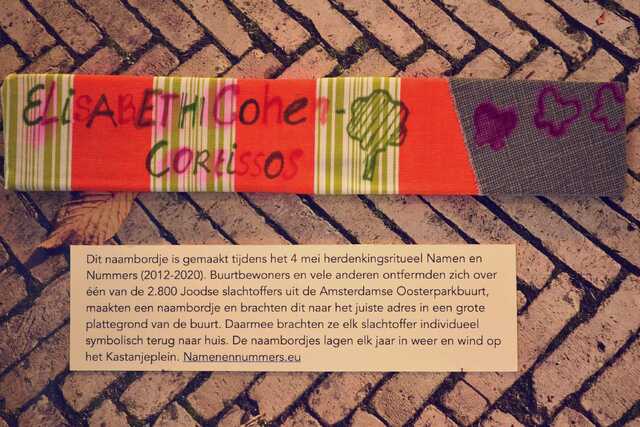 ELiSABETH Cohen-
COREiSSOS
Dit naambordje is gemaakt tijdens het 4 mei herdenkingsritueel Namen en
Nummers (2012-2020). Buurtbewoners en vele anderen ontfermden zich over
één van de 2.800 Joodse slachtoffers uit de Amsterdamse Oosterparkbuurt,
maakten een naambordje en brachten dit naar het juiste adres in een grote
plattegrond van de buurt. Daarmee brachten ze elk slachtoffer individueel
symbolisch terug naar huis. De naambordjes lagen elk jaar in weer en wind op
het Kastanjeplein. Namenennummers.eu